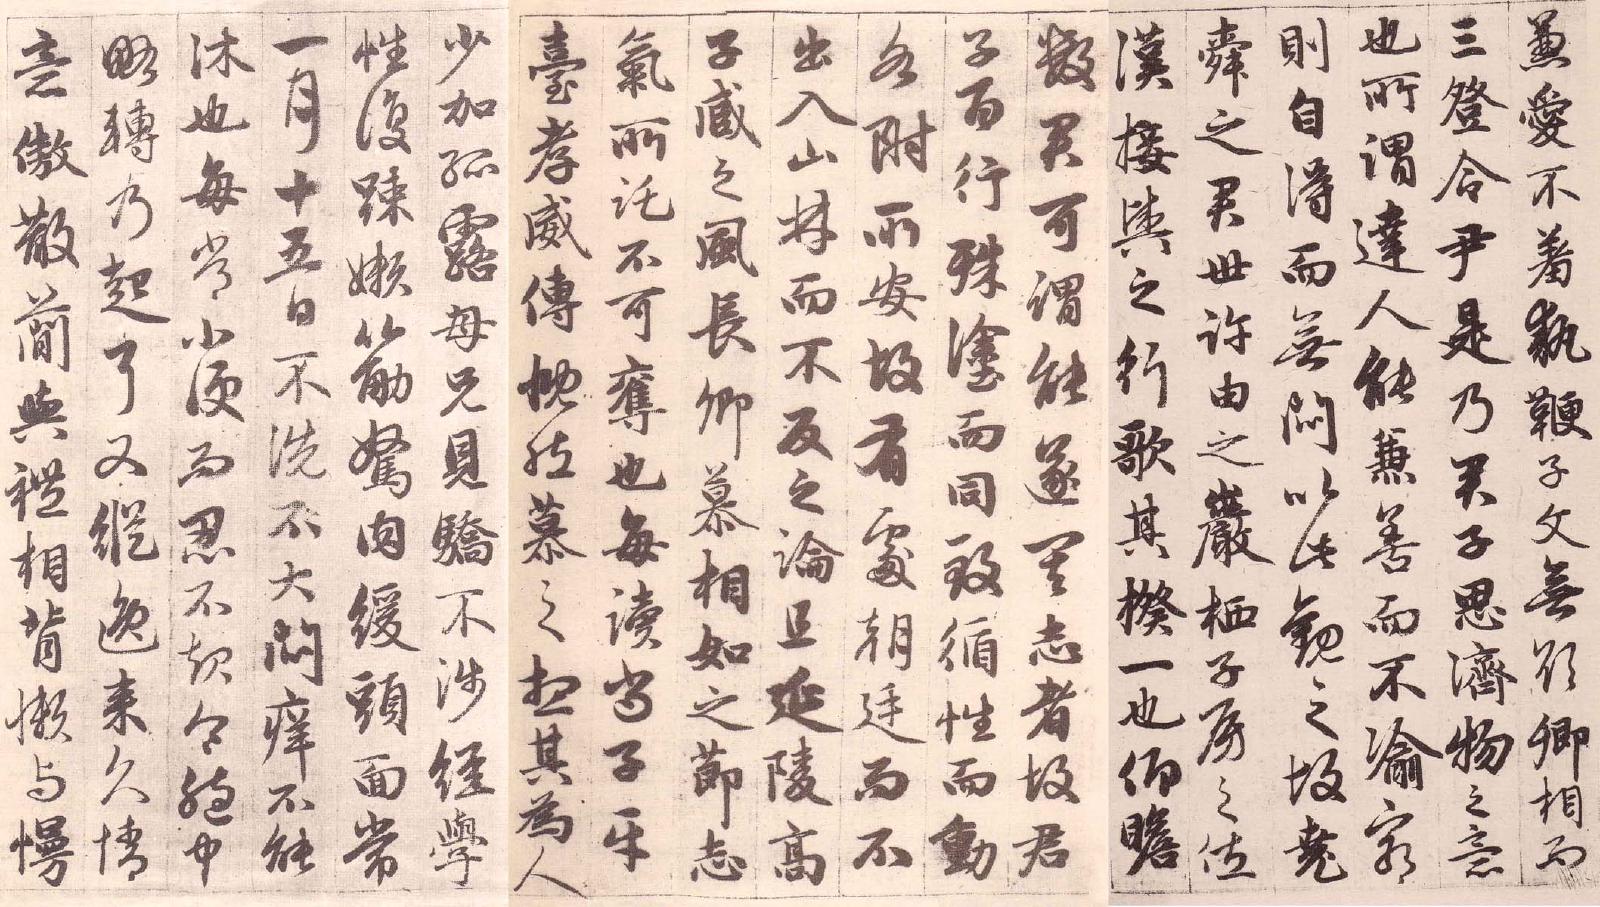 兼愛不羞執鞭子文無欲卿相而
三登令尹是乃君子思濟物之意
也所謂達人能兼善而不渝窮
則自得而無悶以此觀之故堯
舜之君世許由之巖栖子房之佐
漢接輿之行歌其揆一也仰瞻
數君可謂能遂其志者故君
子百行殊塗而同致循性而動
各附所安故有處朝廷而不
出入山林而不反之論且延陵高
子臧之風長卿慕相如之節志
氣所託不可奪也每讀尚子平
臺孝威傳慨然慕之想其為人
少加孤露母兄見驕不涉經學
性復疎嬾筋駑肉緩頭面常
一月十五日不洗不大悶癢不能
沐也每常小便而忍不起令胞中
略轉乃起耳又縱逸來久情
意傲散簡與禮相背懶与慢